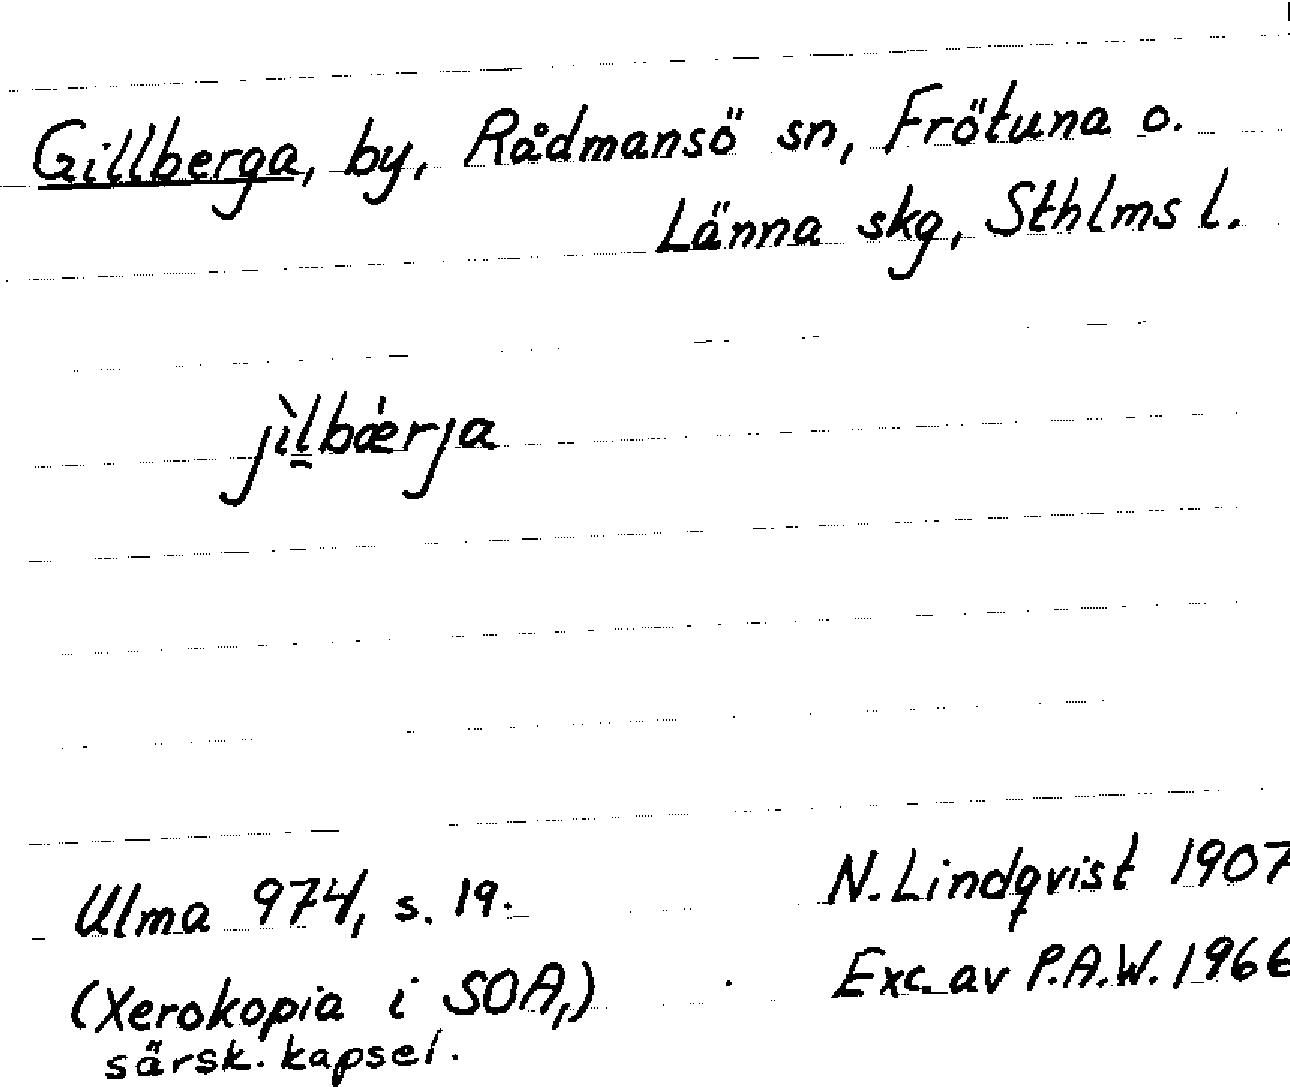 Gillberga, by, Rådmansö sn, Frötuna o.
Länna skg, Sthlms l.
jìl̠bǽrja
Ulma 974, s. 19.
N. Lindqvist 1907
(Xerokopia i SOA,)
särsk. kapsel.
Exc. av P.A.W. 1966